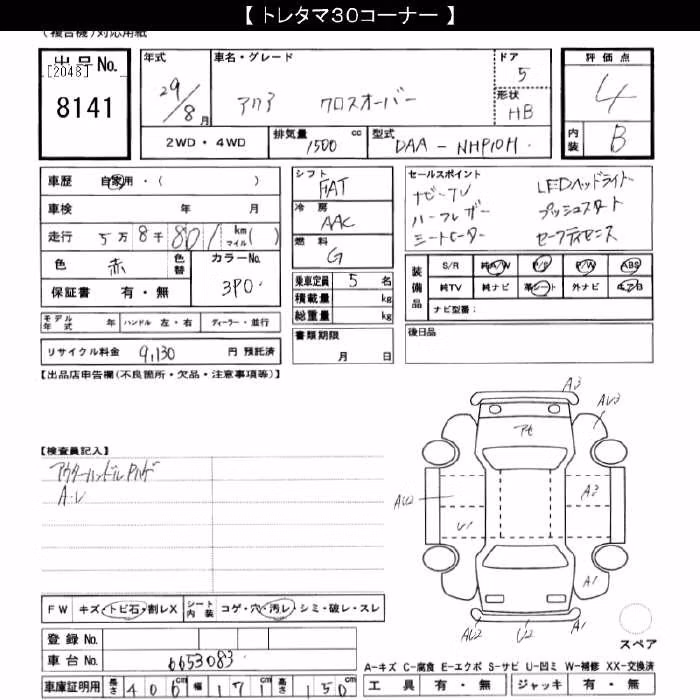 【 トレタマ３０コーナー 】
(複合機)対応用紙
出品No.
[2048]
8141
年式
29/8月
車名・グレード
アクア クロスオーバー
ドア
5
形状
HB
2WD・4WD
排気量 1500 cc
型式 DAA-NHP10H
評価点
4
内装 B
車歴 自家用・( )
車検 年 月
走行 5万8千801 km マイル( )
色 赤
色替
カラーNo.
3P0
保証書 有・無
シフト
FAT
冷房
AAC
燃料
G
乗車定員 5 名
積載量 kg
総重量 kg
書類期限
月 日
セールスポイント
ナビ・TV LEDヘッドライト
ハーフレザー プッシュスタート
シートヒーター セーフティセンス
装備品
S/R 純A/W P/S P/W ABS
純TV 純ナビ 革シート 外ナビ エアB
ナビ型番:
後日品
モデル年式 年 ハンドル 左・右 ディーラー・並行
リサイクル料金 9,130 円 預託済
【出品店申告欄(不良箇所・欠品・注意事項等)】
【検査員記入】
アウターハンドル
A・U
FW キズ・トビ石・割レX
シート内装 コゲ・穴・汚レ・シミ・破レ・スレ
登録No.
車台No. 6653083
車庫証明用 長さ 406cm 幅 171cm 高さ 150cm
A3
AU3
AU2
A3
U1
A1
AU2
U2
A1
スペア
A-キズ C-腐食 E-エクボ S-サビ U-凹ミ W-補修 XX-交換済
工具 有・無 ジャッキ 有・無